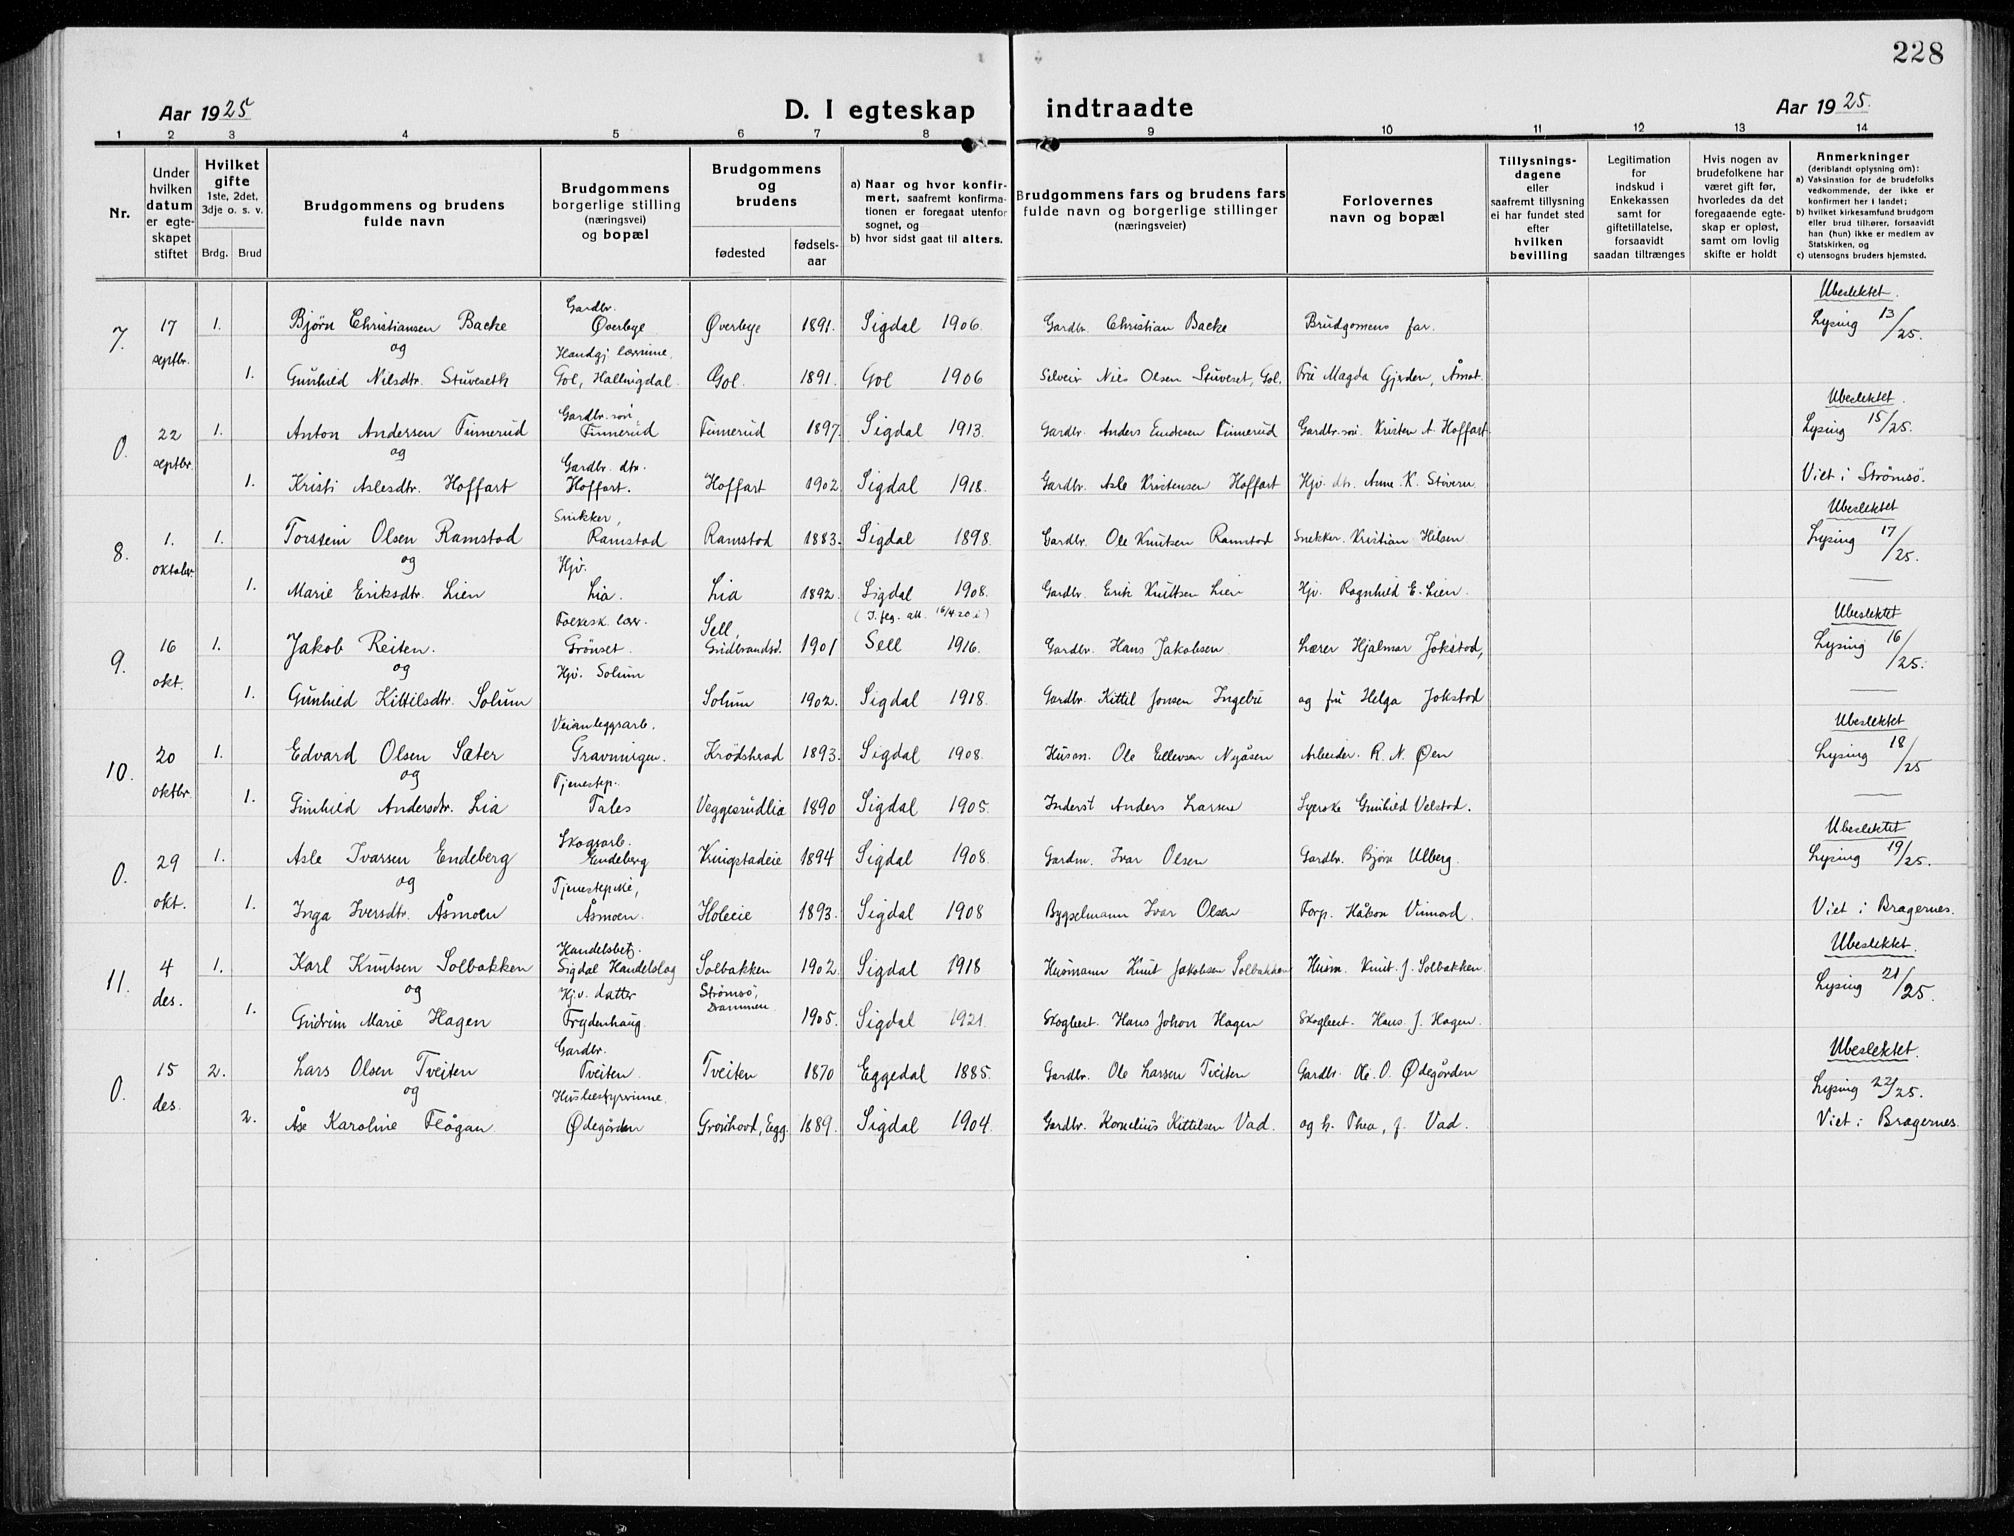 228
Aar 1925 D. I egteskap indtraadte Aar 1925.
1 2 3 4 5 6 7 8 9 10 11 12 13 14
Nr.
Under
hvilken
datum
er egte-
skapet
stiftet
Hvilket
gifte
1ste, 2det,
3dje o. s. v.
Brdg. Brud
Brudgommens og brudens
fulde navn
Brudgommens
borgerlige stilling
(næringsvei)
og bopæl
Brudgommens
og
brudens
fødested
fødsels-
aar
a) Naar og hvor konfir-
mert, saafremt konfirma-
tionen er foregaat utenfor
sognet, og
b) hvor sidst gaat til alters.
Brudgommens fars og brudens fars
fulde navn og borgerlige stillinger
(næringsveier)
Forlovernes
navn og bopæl
Tillysnings-
dagene
eller
saafremt tillysning
ei har fundet sted
efter
hvilken
bevilling
Legitimation
for
indskud i
Enkekassen
samt for
giftetillatelse,
forsaavidt
saadan tiltrænges
Hvis nogen av
brudefolkene har
været gift før,
hvorledes da det
foregaaende egte-
skap er opløst,
samt om lovlig
skifte er holdt
Anmerkninger
(deriblandt oplysning om):
a) Vaksination for de brudefolks
vedkommende, der ikke er
konfirmert her i landet;
b) hvilket kirkesamfund brudgom
eller brud tilhører, forsaavidt
han (hun) ikke er medlem av
Statskirken, og
c) utensogns bruders hjemsted.
Gardbr. Ubeslektet.
7. 17 1. Bjørn Christiansen Backe Øverbye Øverbye 1891. Sigdal 1906. Gardbr. Christian Backe Brudgomens far. Lysing 13/25.
septbr. og Handgj. lærerinne.
1. Gunhild Nilsdtr. Stuveseth Gol, Hallingdal. Gol. 1891. Gol 1906 Nils Olsen Stuveset, Gol. Fru Magda Gjerden, Åmot.
Gardbr. søn Ubeslektet.
0. 22 1. Anton Andersen Finnerud Finnerud Finnerud 1897. Sigdal 1913. Gardbr. Anders Finnerud Gardbr. søn. Kristen A. Hoffart Lysing 15/25.
septbr. og Gardbr. dtr.
1. Kristi Aslesdtr. Hoffart Hoffart. Hoffart 1902. Sigdal 1918. Gardbr. Asle Kristensen Hoffart Hjv. dtr. Anne K. Viet i Strømsø.
Snikker, Ubeslektet
8. 1. 1. Torstein Olsen Ramstad Ramstad Ramstad 1883. Sigdal 1898. Gardbr. Ole Knutsen Ramstad Snekker. Kristian Lysing 17/25.
oktober. og Hjv.
1. Marie Eriksdtr. Lien Lia. Lia 1892. Sigdal 1908. Gardbr. Erik Knuttsen Lien Hjv. Ragnhild E. Lien.
Folkesk. lær. Sell (I. flg. att. 16/4 20 i) Ubeslektet
9. 16 1. Jakob Reiten. Grønset. Gudbrandsd. 1901 Sell 1916. Gardbr. Hans Jakobsen Lærer Hjalmar Jokstad, Lysing 16/25.
okt. og Hjv. Solum
1. Gunhild Kittilsdtr. Solum Solum 1902. Sigdal 1918. Gardbr. Kittil Jonsen Ingebu og fru Helga Jokstad
Veianleggsarb. Ubeslektet
10. 20 1. Edvard Olsen Sæter Gravningen. Krødsherad 1893. Sigdal 1908. Husm. Ole Ellevsen Nyåsen Arbeider. R. N. Øen Lysing 18/25
oktbr. og Tjenestep.
1. Gunhild Andersdtr. Lia Tales Veggesrudlia 1890 Sigdal 1905. Inderst Anders Larsen Syerske Gunhild Velstad.
Skogsarb. Ubeslektet
0. 29 1. Asle Ivarsen Endeberg Endeberg Kringstadeie 1894 Sigdal 1908. Gardm. Ivar Olsen Gardbr. Ulberg. Lysing 19/25.
okt. og Tjenestepike,
1. Inga Iversdtr. Åsmoen Åsmoen. Holeie 1893. Sigdal 1908 Bygselmann Ivar Olsen Forp. Håkon Viet i Bragernes.
Handelsbetj. Ubeslektet.
11. 4 1. Karl Knutsen Solbakken Sigdal Handelslag Solbakken 1902. Sigdal 1918 Husmann Knut Jakobsen Solbakken Husm. Knut. J. Solbakken. Lysing 21/25.
des. og Hjv. datter Strømsø,
1. Gudrun Marie Hagen Frydenhaug. Drammen 1905. Sigdal 1921. Skogbest. Hans Johan Hagen Skogbest. Hans J. Hagen
Gardbr. Ubeslektet.
0. 15 2. Lars Olsen Tveiten Tveiten. Tveiten 1870 Eggedal 1885. Gardbr. Ole Larsen Tveiten Gardbr. Ole. O. Ødegården Lysing 22/25.
des. og Husbestyrerinne.
2. Åse Karoline Flågan. Ødegården Grønhovd, Egg. 1889. Sigdal 1904. Gardbr. Kornelius Kittilsen Vad. og h. Thea, f. Vad. Viet i Bragernes.